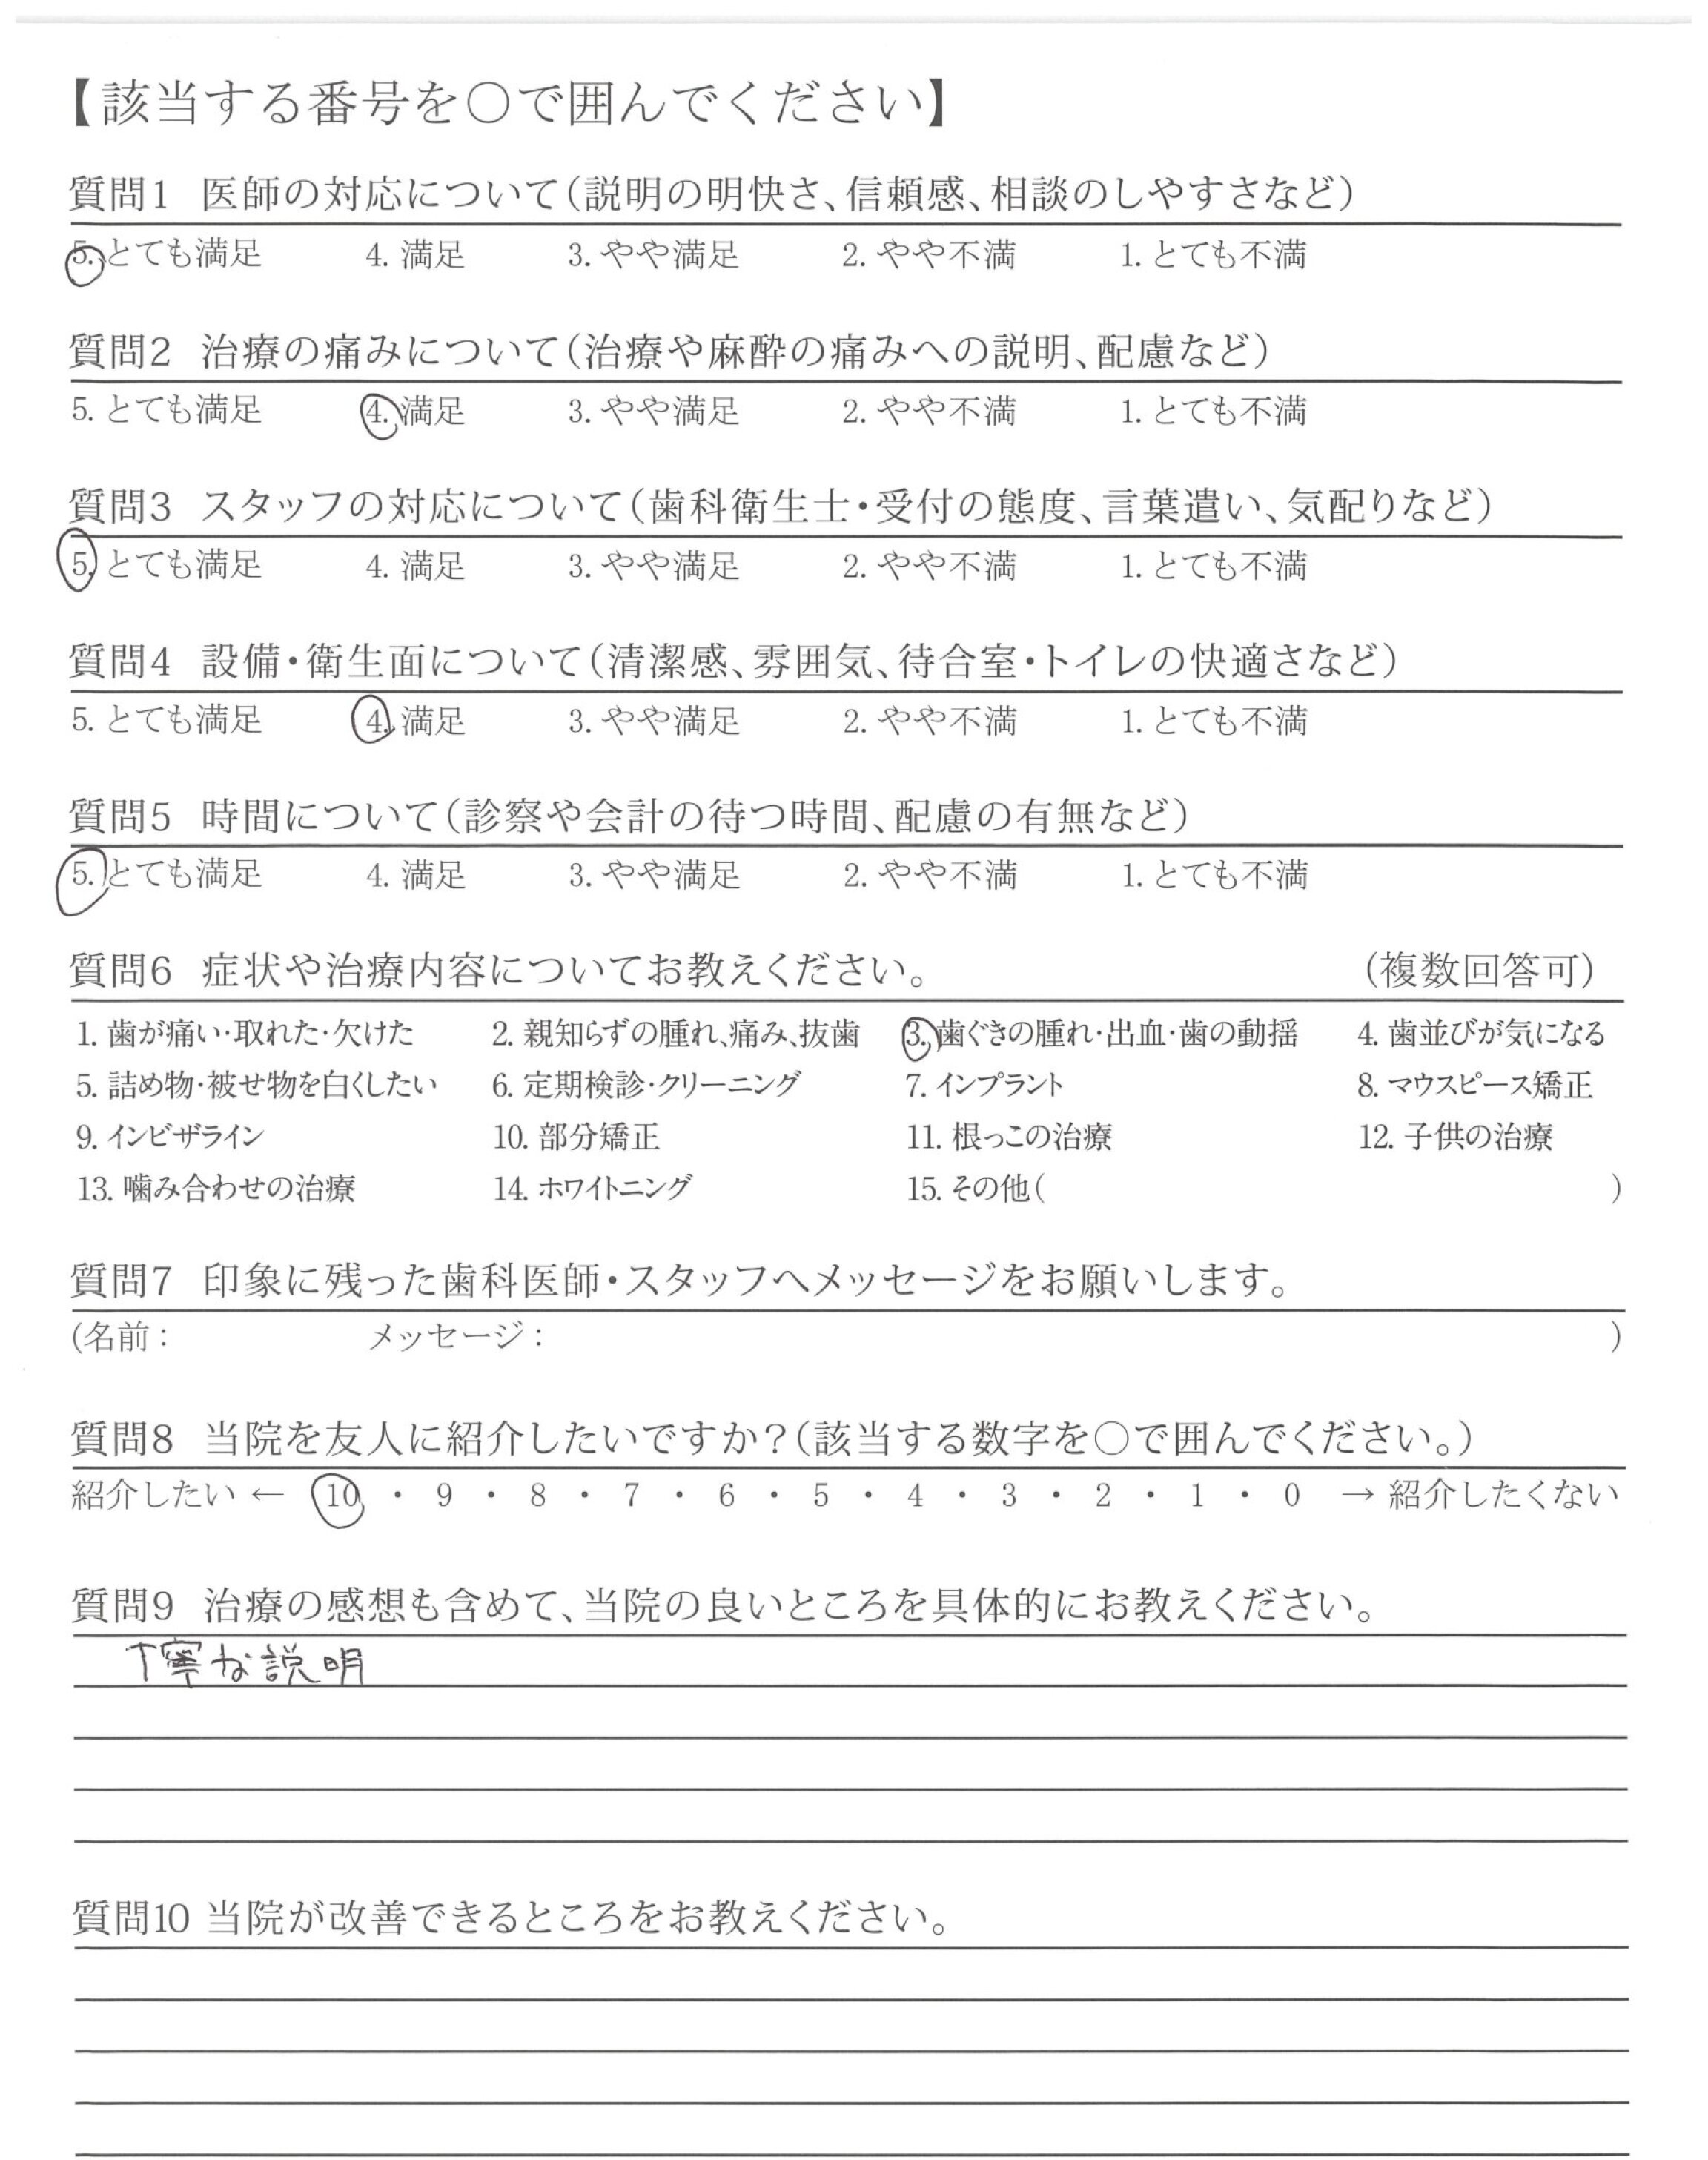 【該当する番号を○で囲んでください】
質問1 医師の対応について(説明の明快さ、信頼感、相談のしやすさなど)
5. とても満足 4. 満足 3. やや満足 2. やや不満 1. とても不満
質問2 治療の痛みについて(治療や麻酔の痛みへの説明、配慮など)
5. とても満足 4. 満足 3. やや満足 2. やや不満 1. とても不満
質問3 スタッフの対応について(歯科衛生士・受付の態度、言葉遣い、気配りなど)
5. とても満足 4. 満足 3. やや満足 2. やや不満 1. とても不満
質問4 設備・衛生面について(清潔感、雰囲気、待合室・トイレの快適さなど)
5. とても満足 4. 満足 3. やや満足 2. やや不満 1. とても不満
質問5 時間について(診察や会計の待つ時間、配慮の有無など)
5. とても満足 4. 満足 3. やや満足 2. やや不満 1. とても不満
質問6 症状や治療内容についてお教えください。 (複数回答可)
1. 歯が痛い・取れた・欠けた 2. 親知らずの腫れ、痛み、抜歯 3. 歯ぐきの腫れ・出血・歯の動揺 4. 歯並びが気になる
5. 詰め物・被せ物を白くしたい 6. 定期検診・クリーニング 7. インプラント 8. マウスピース矯正
9. インビザライン 10. 部分矯正 11. 根っこの治療 12. 子供の治療
13. 噛み合わせの治療 14. ホワイトニング 15. その他( )
質問7 印象に残った歯科医師・スタッフへメッセージをお願いします。
(名前： メッセージ： )
質問8 当院を友人に紹介したいですか?(該当する数字を○で囲んでください。)
紹介したい ← 10 ・ 9 ・ 8 ・ 7 ・ 6 ・ 5 ・ 4 ・ 3 ・ 2 ・ 1 ・ 0 → 紹介したくない
質問9 治療の感想も含めて、当院の良いところを具体的にお教えください。
丁寧な説明
質問10 当院が改善できるところをお教えください。